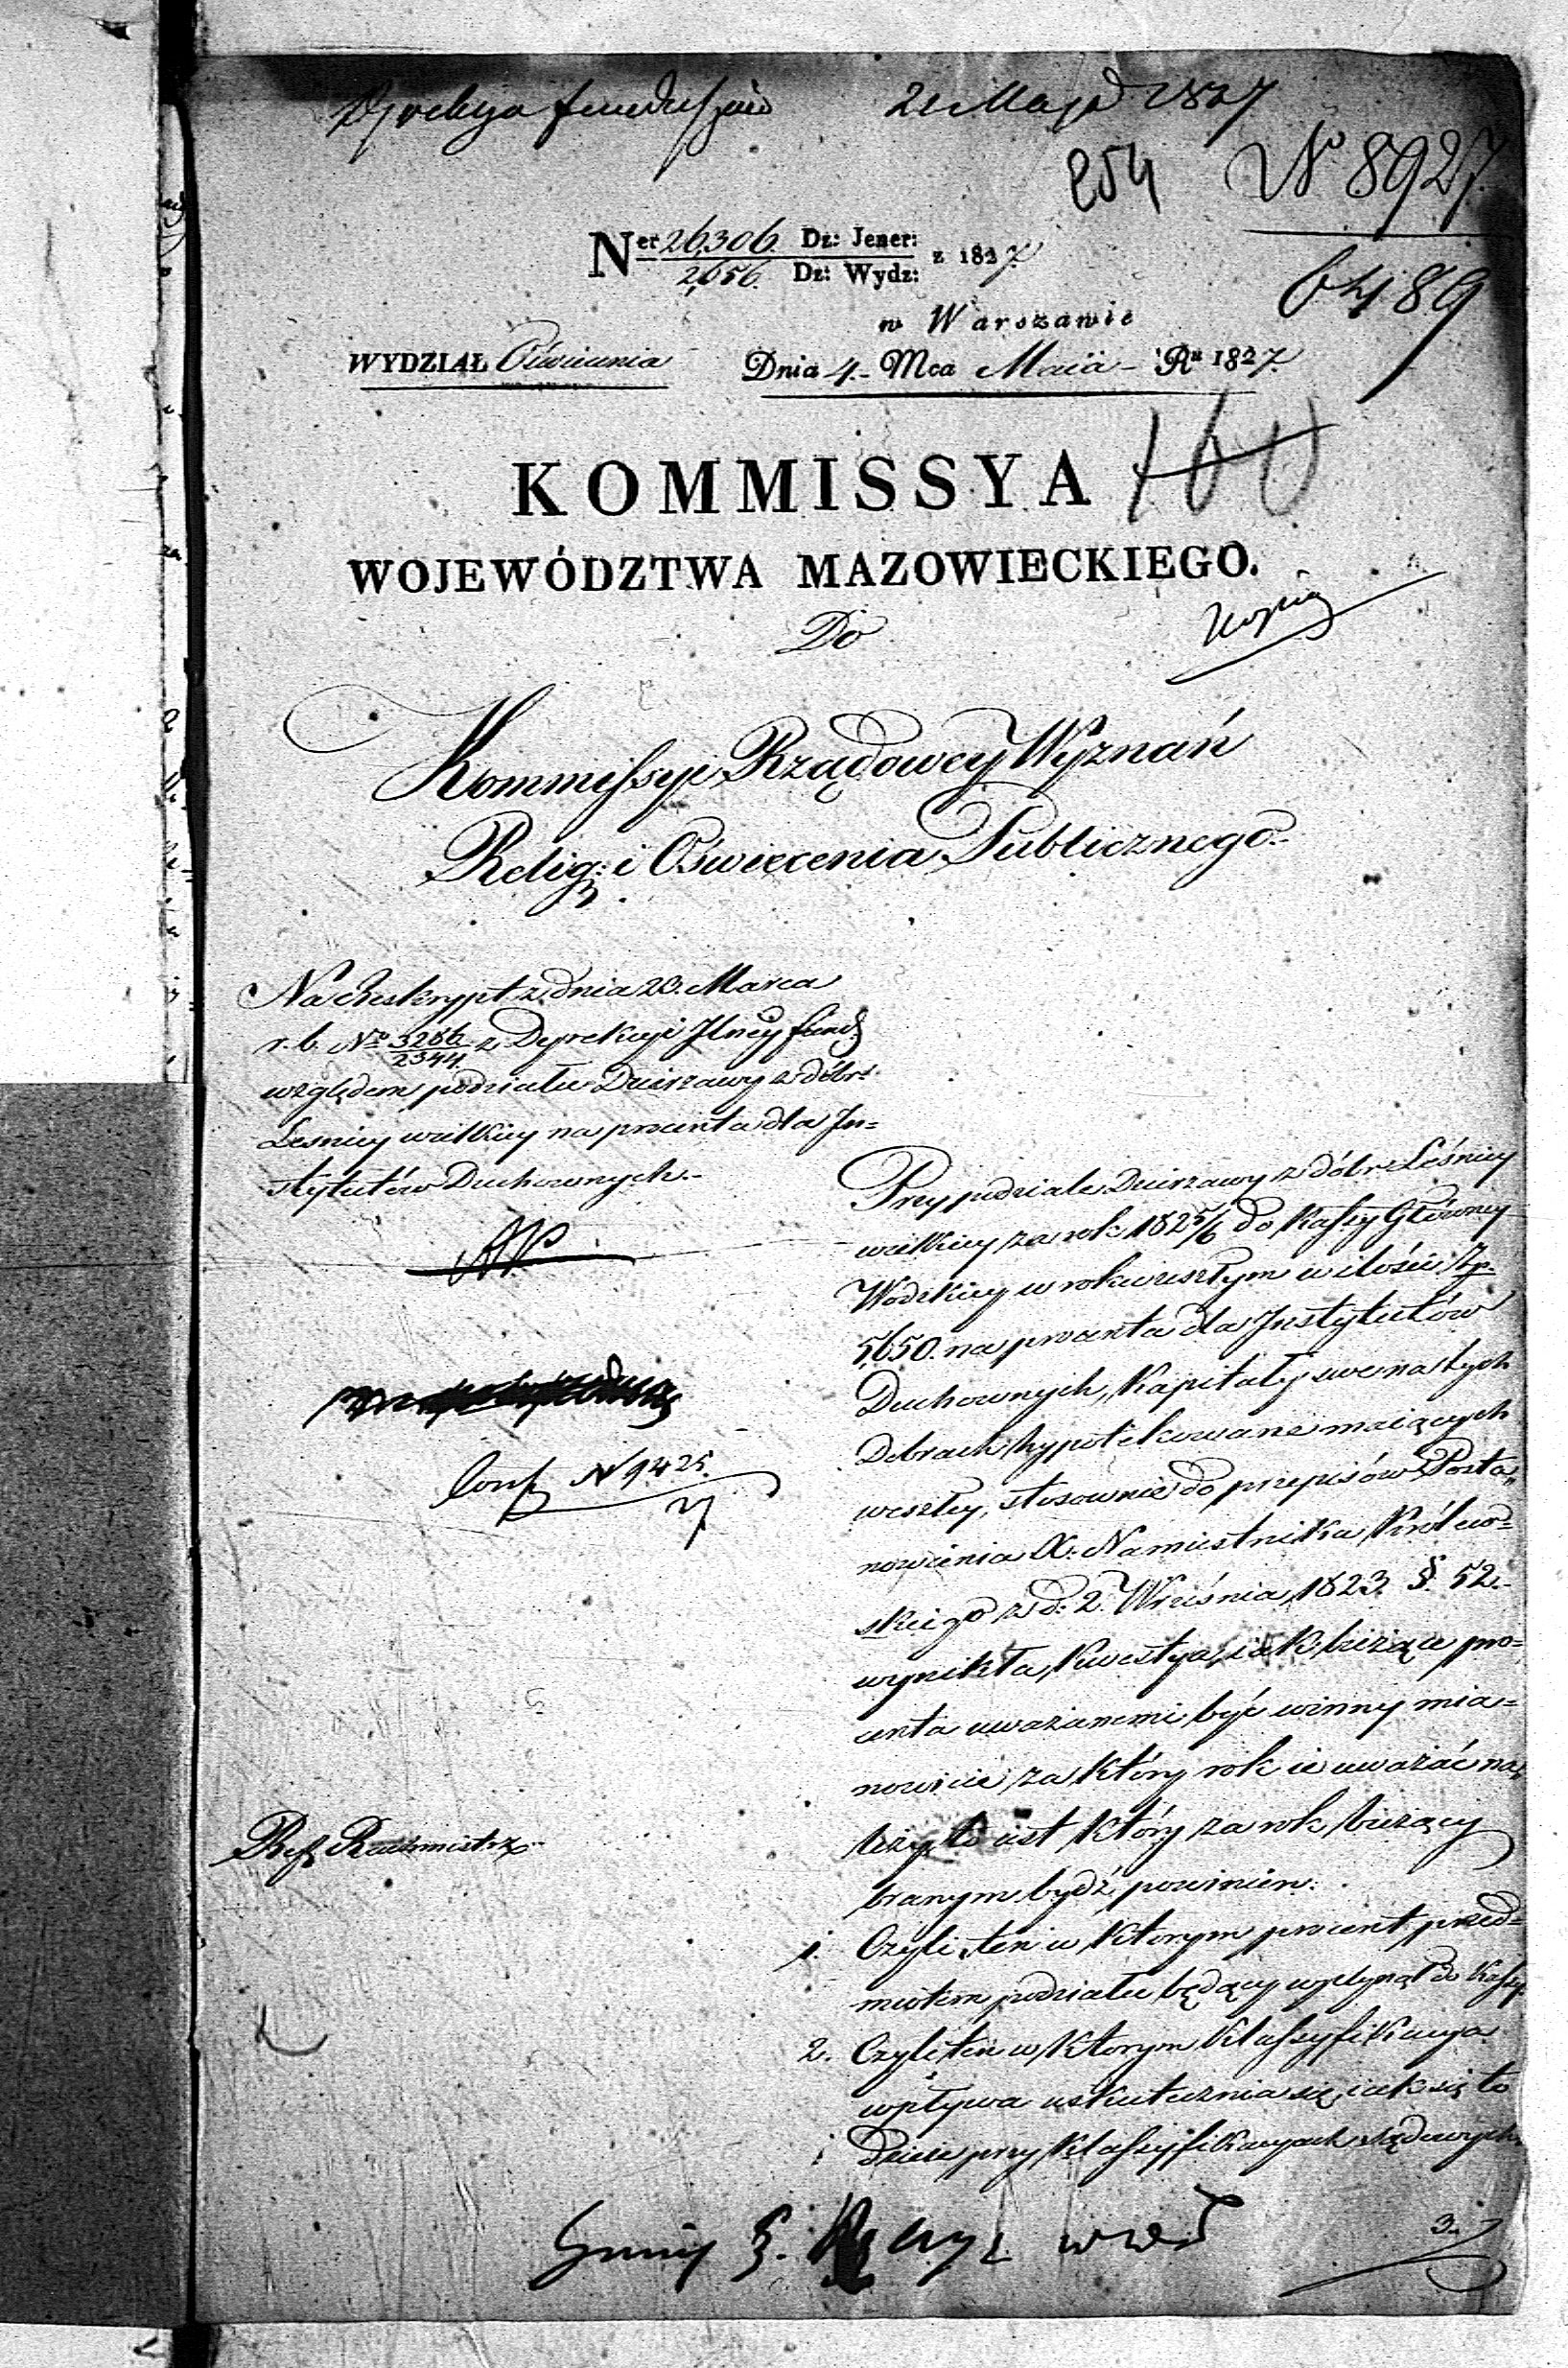 Dyrekcja funduszów 21 Maja 1827
254 No 8927
6489
Ner 26,306. Dz: Jener: z 1827
2,656. Dz: Wydz:
w Warszawie
WYDZIAŁ Oświecenia Dnia 4.- Mca Maia - Ru 1827.
160
KOMMISSYA
WOJEWÓDZTWA MAZOWIECKIEGO.
Do
Kommissyi Rządowey Wyznań
Relig: i Oświecenia Publicznego.-
Na Reskrypt z dnia 20. Marca
r. b. No 3286/2344 z Dyrekcyi Jlney fund:
względem podziału Dzierżawy z dóbr
Leśnicy wielkiey na procenta dla In=
stytutów Duchownych.-
Conf N 9425.
27
Przy podziale Dzierżawy z dóbr Leśnicy
wielkiey za rok 1825/6 do Kassy Główney
Wodzkiey w roku zeszłym w ilości Zp.
5,650. na procenta dla Instytutów
Duchownych, Kapitały swe na tych
Dobrach hypotekowane maiących
weszłey, stosownie do przepisów Posta„
nowienia X: Namiestnika Królew=
skiego z d: 2. Września 1823. §. 52.-
wynikła kwestya, iak bieżące pro=
centa uważanemi być winny mia=
nowicie za który rok ie uważać na„
leży, to iest który za rok bieżący
branym bydź powinien:
1. Czyli ten w którym procent przed=
miotem podziału będący wpłynął do Kassy
2. Czyli ten w którym Klassyfikacya
wpływa uskutecznia się, iak się to
dzieie przy Klassyfikacyach sądowych,
Ref Rachmistrz
3.